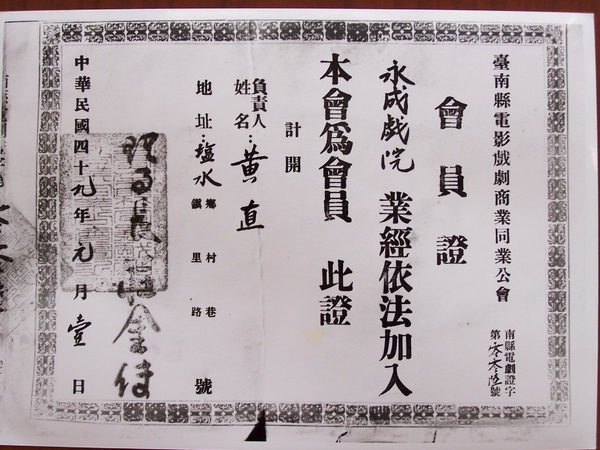 臺南縣電影戲劇商業同業公會
南縣電劇證字
第零零陸號
會員證
永成戲院 業經依法加入
本會為會員 此證
計開
負責人
姓名：黃直
地址：塩水 鄉鎮 村里 巷路 號
中華民國四十九年元月壹日